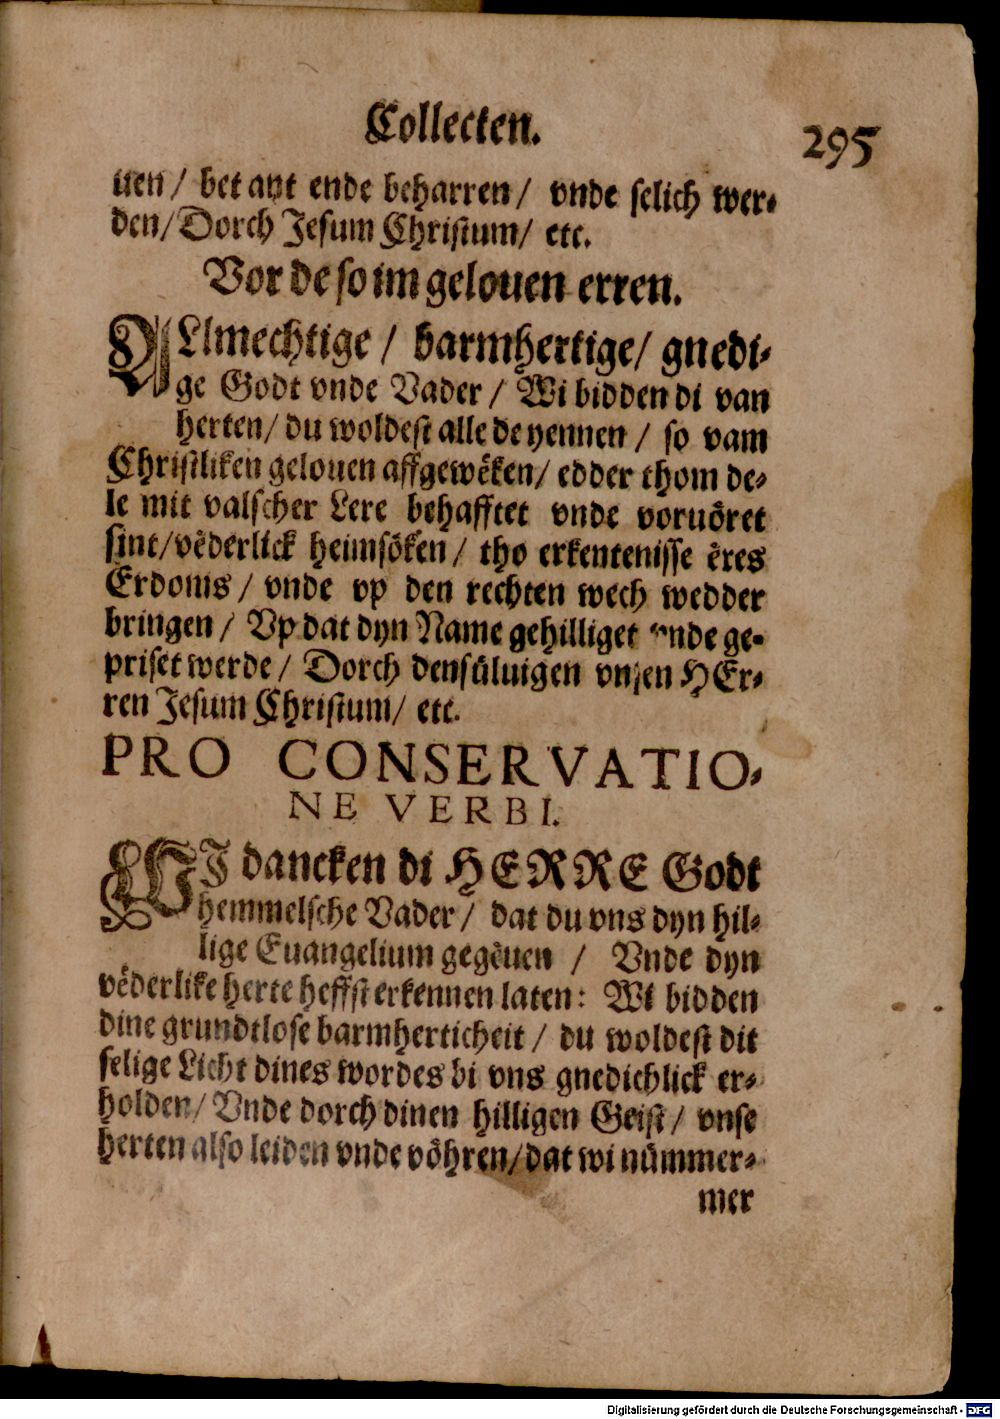 Collecten.
295
uen / bet ant ende beharren / vnde selich wer-
den / Dorch Jesum Christum / etc.
Vor de so im gelouen erren.
ALlmechtige / barmhertige / gnedi-
ge Godt vnde Vader / Wi bidden di van
herten / du woldest alle de yennen / so vam
Christliken gelouen affgewêken / edder thom de-
le mit valscher Lere behafftet vnde voruöret
sint / vêderlick heimsöken / tho erkentenisse êres
Erdoms / vnde vp den rechten wech wedder
bringen / Vp dat dyn Name gehilliget vnde ge-
priset werde / Dorch densüluigen vnsen HEr-
ren Jesum Christum / etc.
PRO CONSERVATIO-
NE VERBI.
WJ dancken di HERRE Godt
hemmelsche Vader / dat du vns dyn hil-
lige Euangelium gegêuen / Vnde dyn
vêderlike herte heffst erkennen laten: Wi bidden
dine grundtlose barmherticheit / du woldest dit
selige Licht dines wordes bi vns gnedichlick er-
holden / Vnde dorch dinen hilligen Geist / vnse
herten also leiden vnde vöhren / dat wi nümmer-
mer
Digitalisierung gefördert durch die Deutsche Forschungsgemeinschaft - DFG